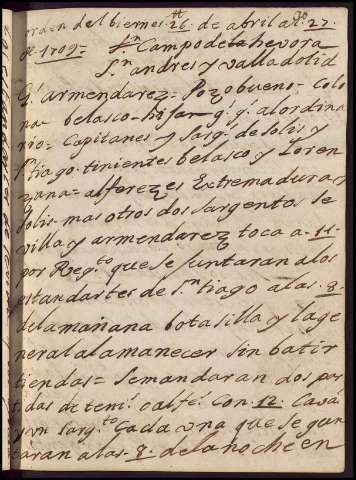 orden del biernes 26 de abril al 27.
de 1709= Sn Campo de la hevora
Sn andres y valladolid
Gl armendarez= Pozobueno= Colo
na= belasco= hijar gl gl al ordina
rio= Capitanes y sargs de solis y
Stiago. tinientes belasco y Loren
zana= alferezes Extremadura y
solis. mas otros dos sargentos se
villa y armendarez toca a. 11.
por Regto que se juntaran a los
estandartes de Sntiago a las. 8.
de la mañana botasilla y la ge
neral al amanecer sin batir
tiendas= Se mandaran dos par
tidas de teni. o alfe. Con. 12. Cavs
y vn sargto Cada vna que se gun
taran a las. 8. de la noche en